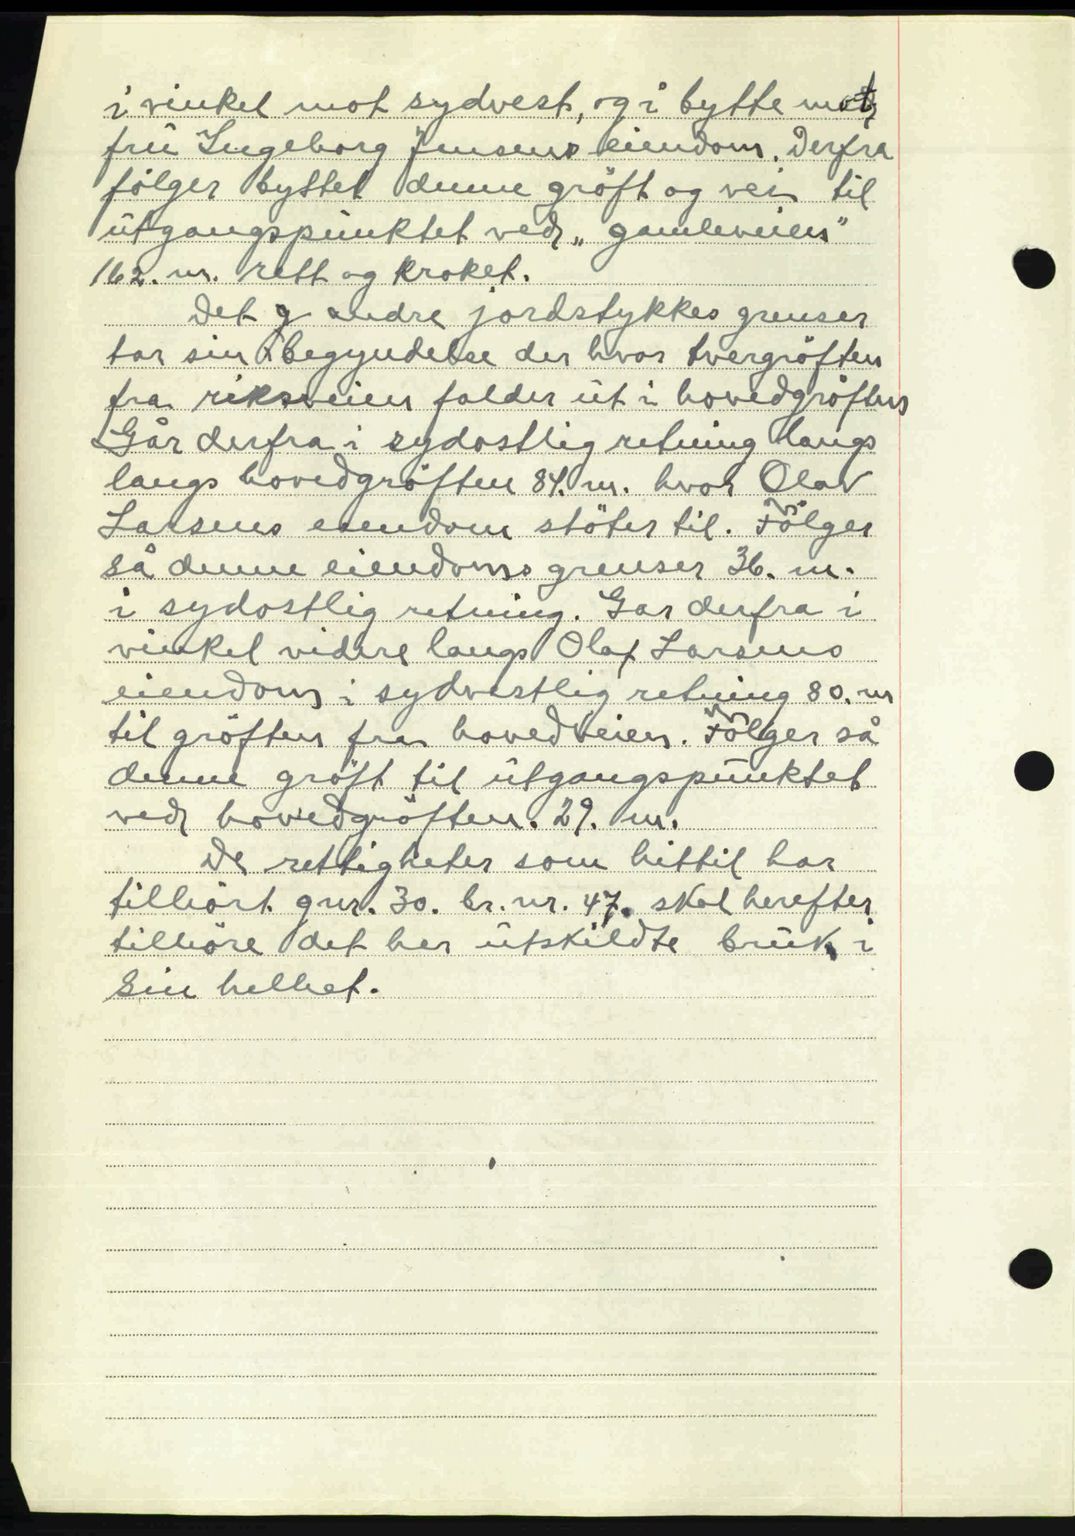 i vinkel mot sydvest, og i bytte mot
fru Ingeborg Jensens eiendom. Derfra
følger byttet denne gröft og vei til
utgangspunktet ved „gamleveien"
162. m. rett og kroket.
Det andre jordstykkes grenser
tar sin begyndelse der hvor tvergröften
fra riksveien falder ut i hovedgröften
Går derfra i sydostlig retning langs
langs hovedgröften 84. m. hvor Olav
Larsens eiendom stöter til. Fölger
så denne eiendoms grenser 36. m.
i sydostlig retning. Gar derfra i
vinkel videre langs Olaf Larsens
eiendom i sydvestlig retning 80. m
til gröften fra hovedveien. Fölger så
denne gröft til utgangspunktet
ved hovedgröften. 29. m.
De rettigheter som hittil har
tilhört gnr. 30. br. nr. 47. skal herefter
tilhöre det her utskildte bruk i
sin helhet.